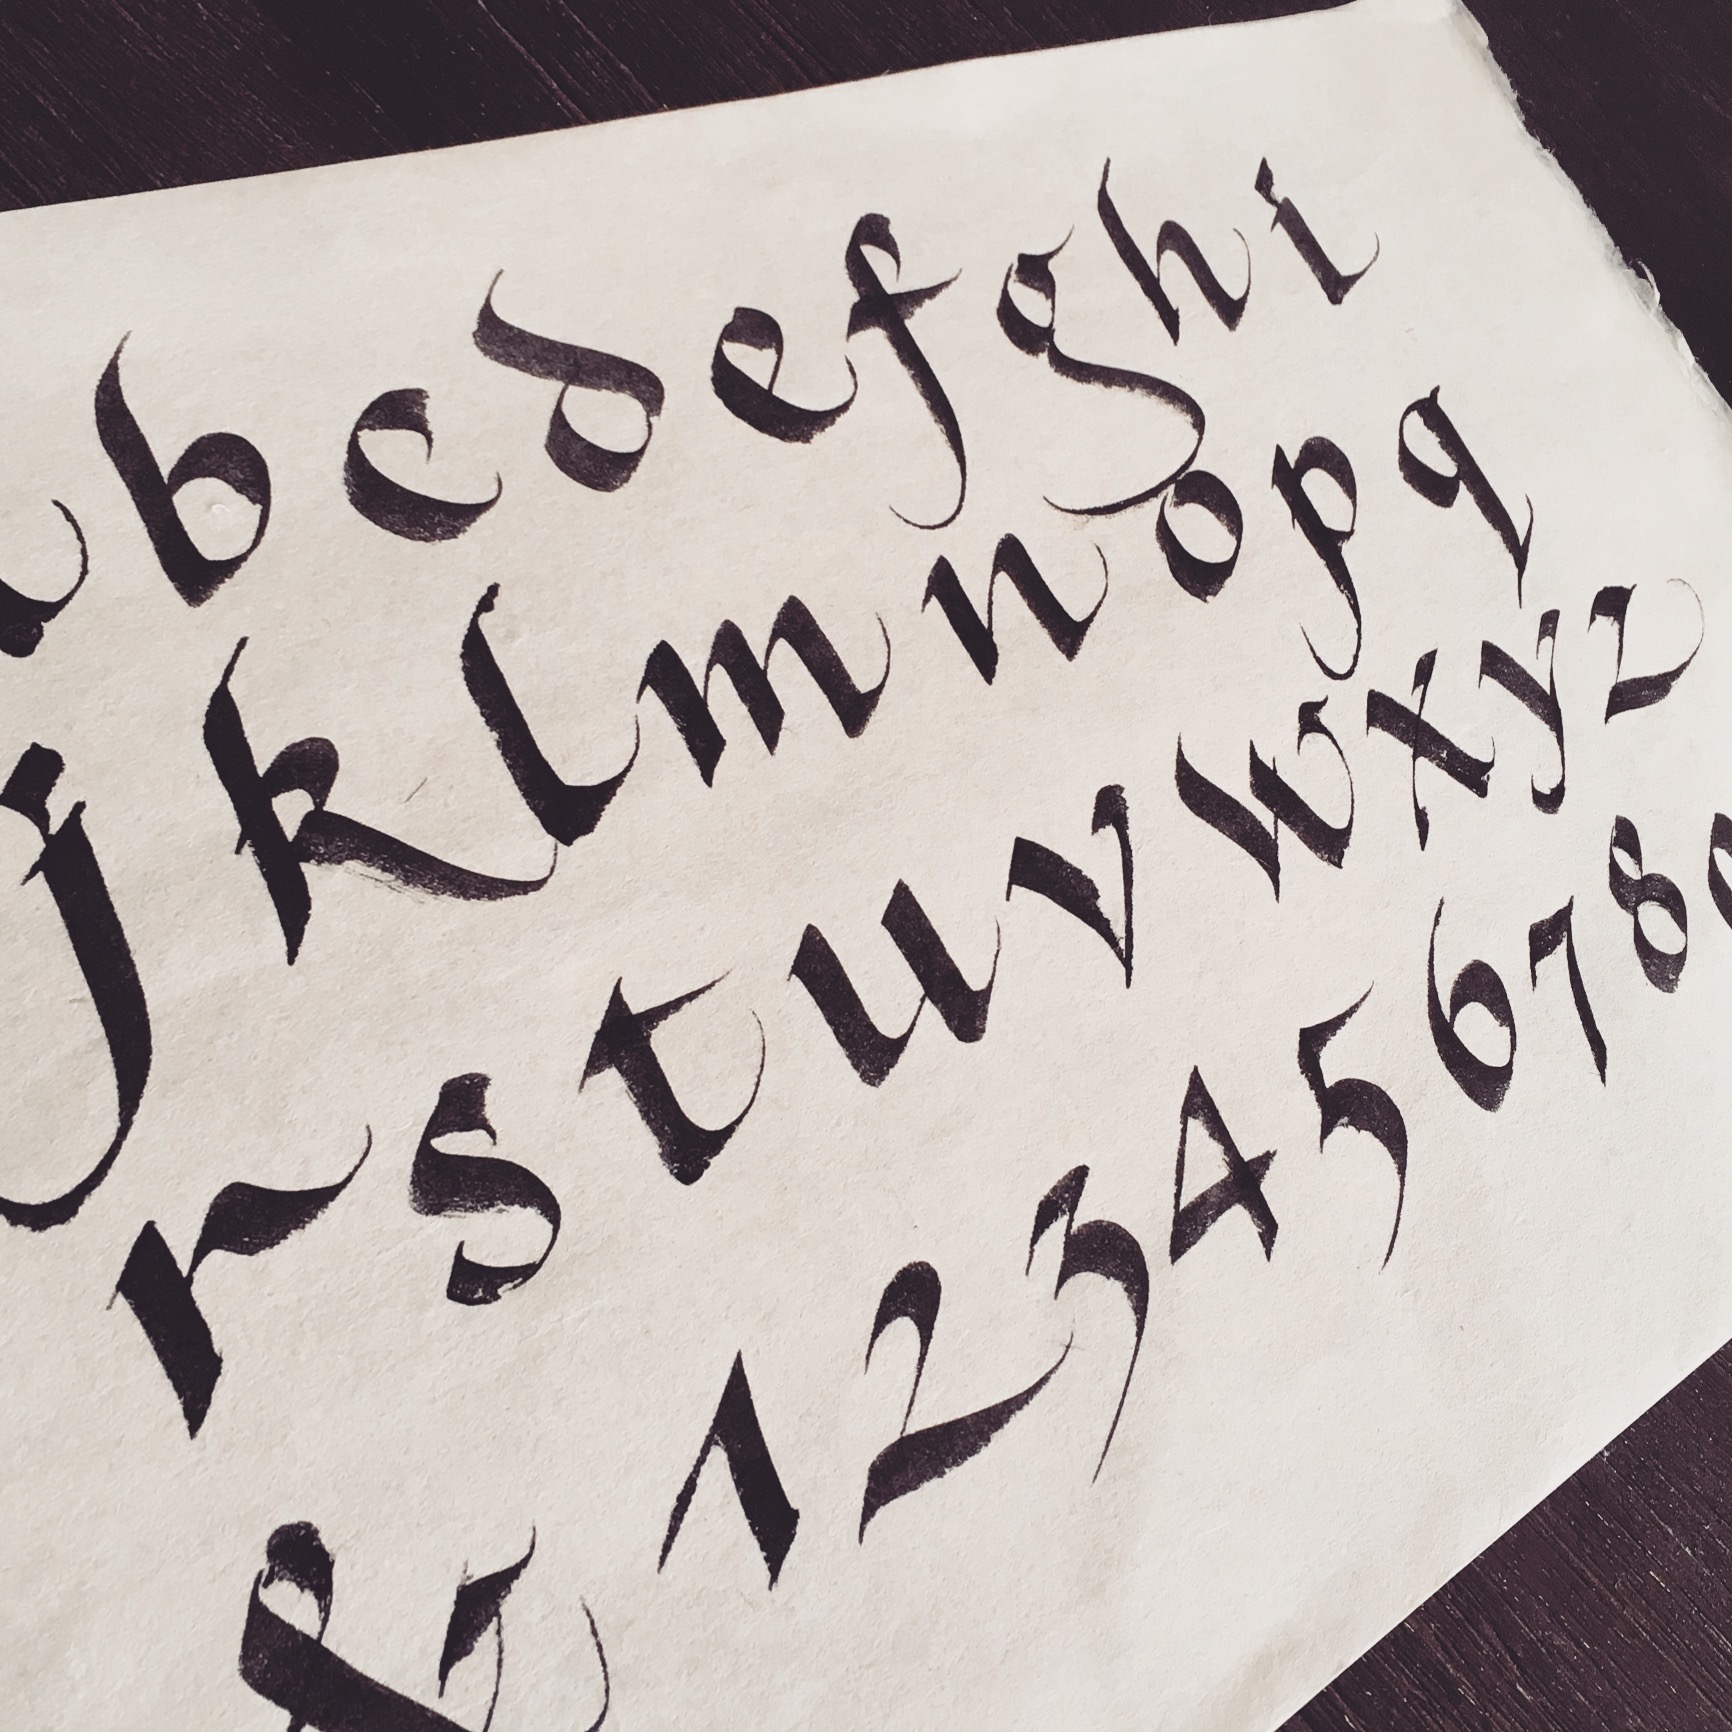 a b c d e f g h i
j k l m n o p q
r s t u v w x y z
& 1 2 3 4 5 6 7 8